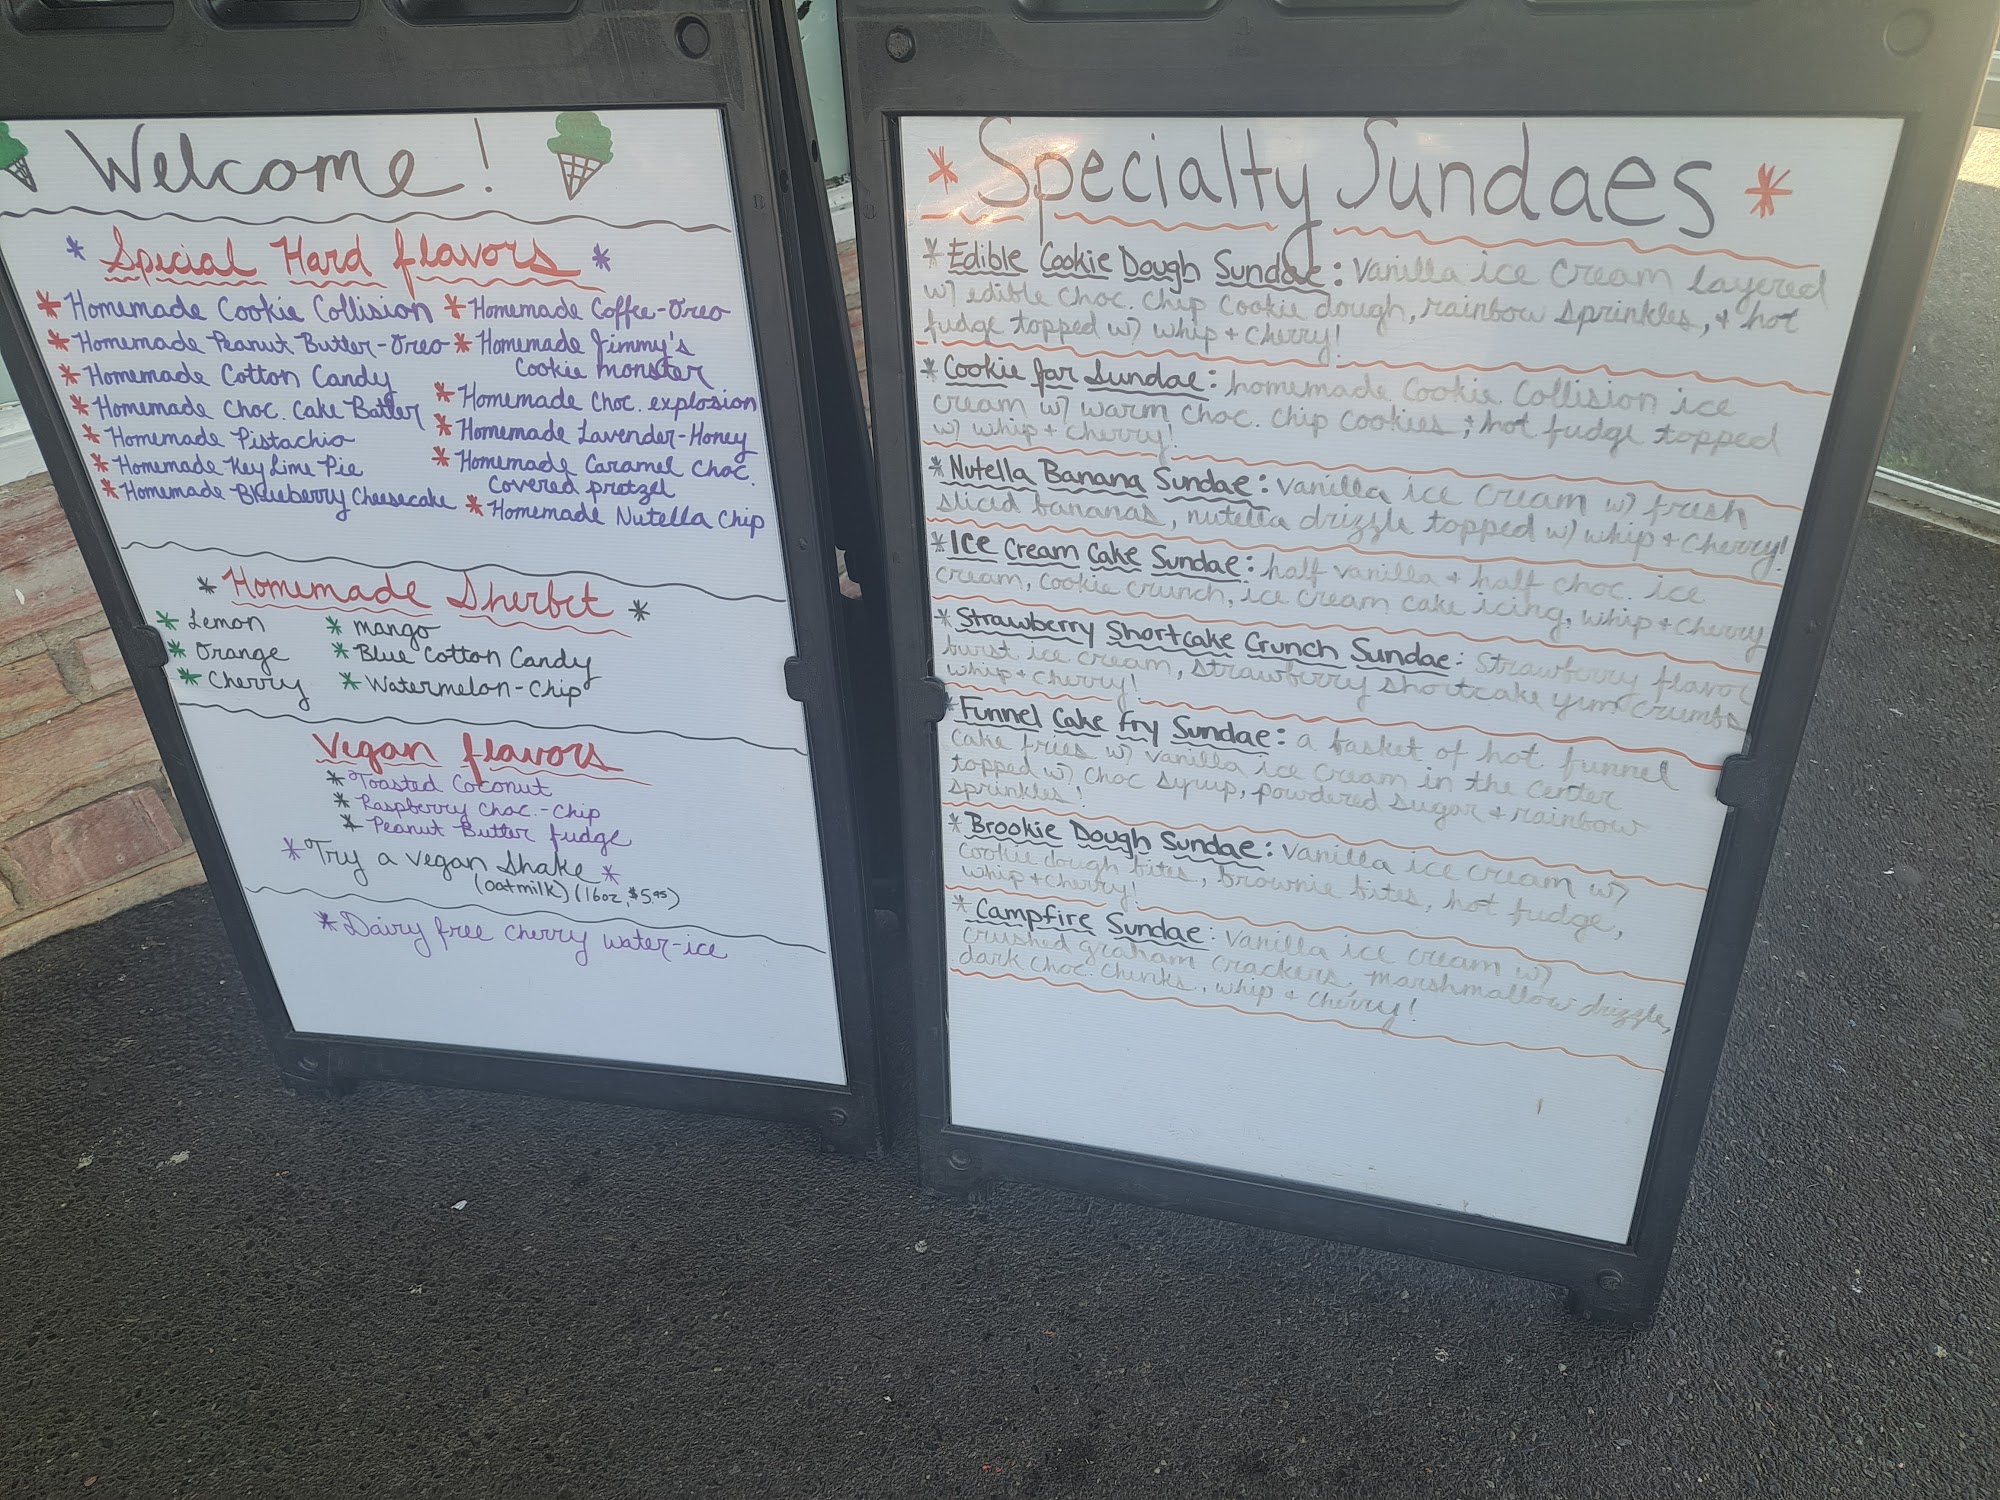 Welcome!
* Special Hard flavors *
* Homemade Cookie Collision
* Homemade Peanut Butter-Oreo
* Homemade Cotton Candy
* Homemade Choc. Cake Batter
* Homemade Pistachio
* Homemade Key Lime Pie
* Homemade Blueberry Cheesecake
* Homemade Coffee-Oreo
* Homemade Jimmy's
Cookie monster
* Homemade Choc. explosion
* Homemade Lavender-Honey
* Homemade Caramel Choc.
Covered pretzel
* Homemade Nutella Chip
* Homemade Sherbet *
* Lemon
* Orange
* Cherry
* mango
* Blue Cotton Candy
* Watermelon-Chip
Vegan flavors
* Toasted Coconut
* Raspberry Choc.-Chip
* Peanut Butter fudge
* Try a vegan Shake *
(oatmilk) (16oz, $5.95)
* Dairy free cherry water-ice
* Specialty Sundaes *
* Edible Cookie Dough Sundae: Vanilla ice cream layered
w/ edible choc. chip cookie dough, rainbow sprinkles, + hot
fudge topped w/ whip + cherry!
* Cookie Jar Sundae: homemade Cookie Collision ice
cream w/ warm choc. chip cookies + hot fudge topped
w/ whip + cherry!
* Nutella Banana Sundae: Vanilla ice cream w/ fresh
sliced bananas, nutella drizzle topped w/ whip + cherry!
* Ice Cream Cake Sundae: half vanilla + half choc. ice
cream, cookie crunch, ice cream cake icing, whip + cherry
* Strawberry Shortcake Crunch Sundae: Strawberry flavor
burst ice cream, strawberry shortcake yum crumbs
whip + cherry!
* Funnel Cake Fry Sundae: a basket of hot funnel
cake fries w/ vanilla ice cream in the center
topped w/ choc syrup, powdered sugar + rainbow
sprinkles!
* Brookie Dough Sundae: Vanilla ice cream w/
cookie dough bites, brownie bites, hot fudge,
whip + cherry!
* Campfire Sundae: Vanilla ice cream w/
crushed graham crackers, marshmallow drizzle,
dark choc. chunks, whip + cherry!